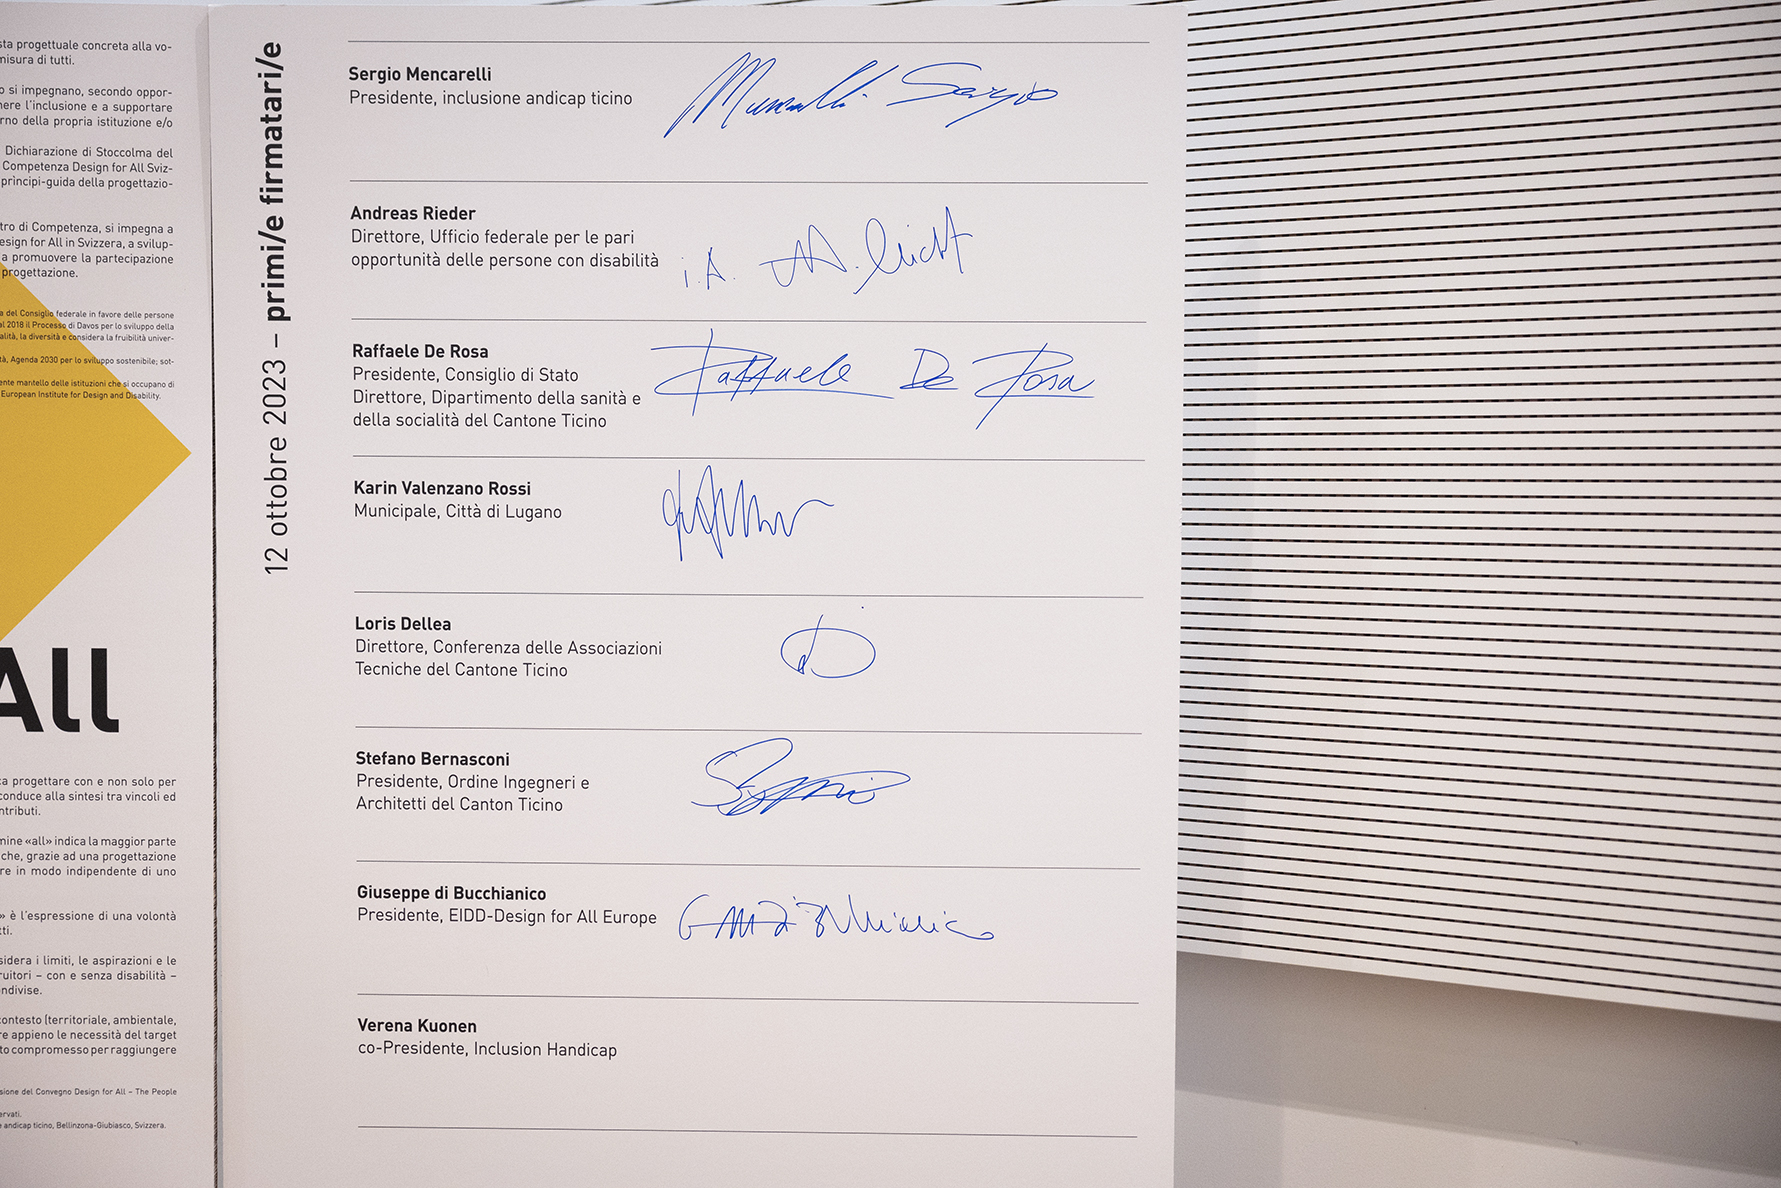 sta progettuale concreta alla vo-
misura di tutti.
o si impegnano, secondo oppor-
nere l'inclusione e a supportare
rno della propria istituzione e/o
Dichiarazione di Stoccolma del
Competenza Design for All Sviz-
principi-guida della progettazio-
tro di Competenza, si impegna a
esign for All in Svizzera, a svilup-
a promuovere la partecipazione
progettazione.
a del Consiglio federale in favore delle persone
al 2018 il Processo di Davos per lo sviluppo della
alità, la diversità e considera la fruibilità univer-
tà, Agenda 2030 per lo sviluppo sostenibile; sot-
ente mantello delle istituzioni che si occupano di
European Institute for Design and Disability.
All
ca progettare con e non solo per
conduce alla sintesi tra vincoli ed
ntributi.
mine «all» indica la maggior parte
che, grazie ad una progettazione
re in modo indipendente di uno
» è l'espressione di una volontà
tti.
sidera i limiti, le aspirazioni e le
ruitori – con e senza disabilità –
ndivise.
contesto (territoriale, ambientale,
re appieno le necessità del target
to compromesso per raggiungere
sione del Convegno Design for All – The People
ervati.
e andicap ticino, Bellinzona-Giubiasco, Svizzera.
12 ottobre 2023 – primi/e firmatari/e
Sergio Mencarelli
Presidente, inclusione andicap ticino
Sergio
Andreas Rieder
Direttore, Ufficio federale per le pari
opportunità delle persone con disabilità
i.A.
Raffaele De Rosa
Presidente, Consiglio di Stato
Direttore, Dipartimento della sanità e
della socialità del Cantone Ticino
Raffaele De Rosa
Karin Valenzano Rossi
Municipale, Città di Lugano
Loris Dellea
Direttore, Conferenza delle Associazioni
Tecniche del Cantone Ticino
Stefano Bernasconi
Presidente, Ordine Ingegneri e
Architetti del Canton Ticino
Giuseppe di Bucchianico
Presidente, EIDD-Design for All Europe
Verena Kuonen
co-Presidente, Inclusion Handicap